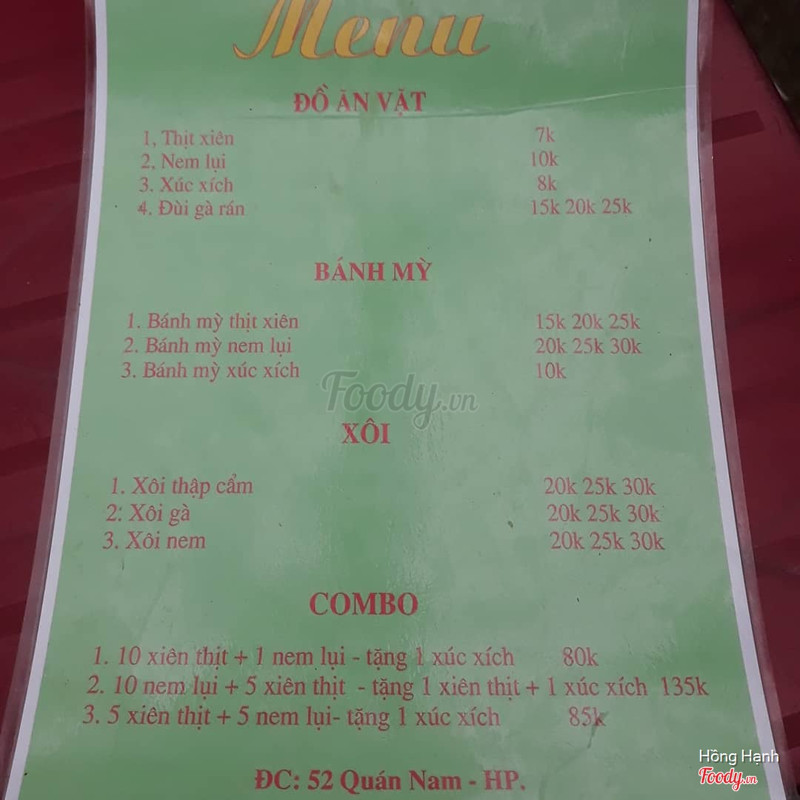 Menu
ĐỒ ĂN VẶT
1, Thịt xiên 7k
2, Nem lụi 10k
3. Xúc xích 8k
4. Đùi gà rán 15k 20k 25k
BÁNH MỲ
1. Bánh mỳ thịt xiên 15k 20k 25k
2. Bánh mỳ nem lụi 20k 25k 30k
3. Bánh mỳ xúc xích 10k
Foody.vn
XÔI
1. Xôi thập cẩm 20k 25k 30k
2. Xôi gà 20k 25k 30k
3. Xôi nem 20k 25k 30k
COMBO
1. 10 xiên thịt + 1 nem lụi - tặng 1 xúc xích 80k
2. 10 nem lụi + 5 xiên thịt - tặng 1 xiên thịt + 1 xúc xích 135k
3. 5 xiên thịt + 5 nem lụi- tặng 1 xúc xích 85k
ĐC: 52 Quán Nam - HP.
Hồng Hạnh
Foody.vn